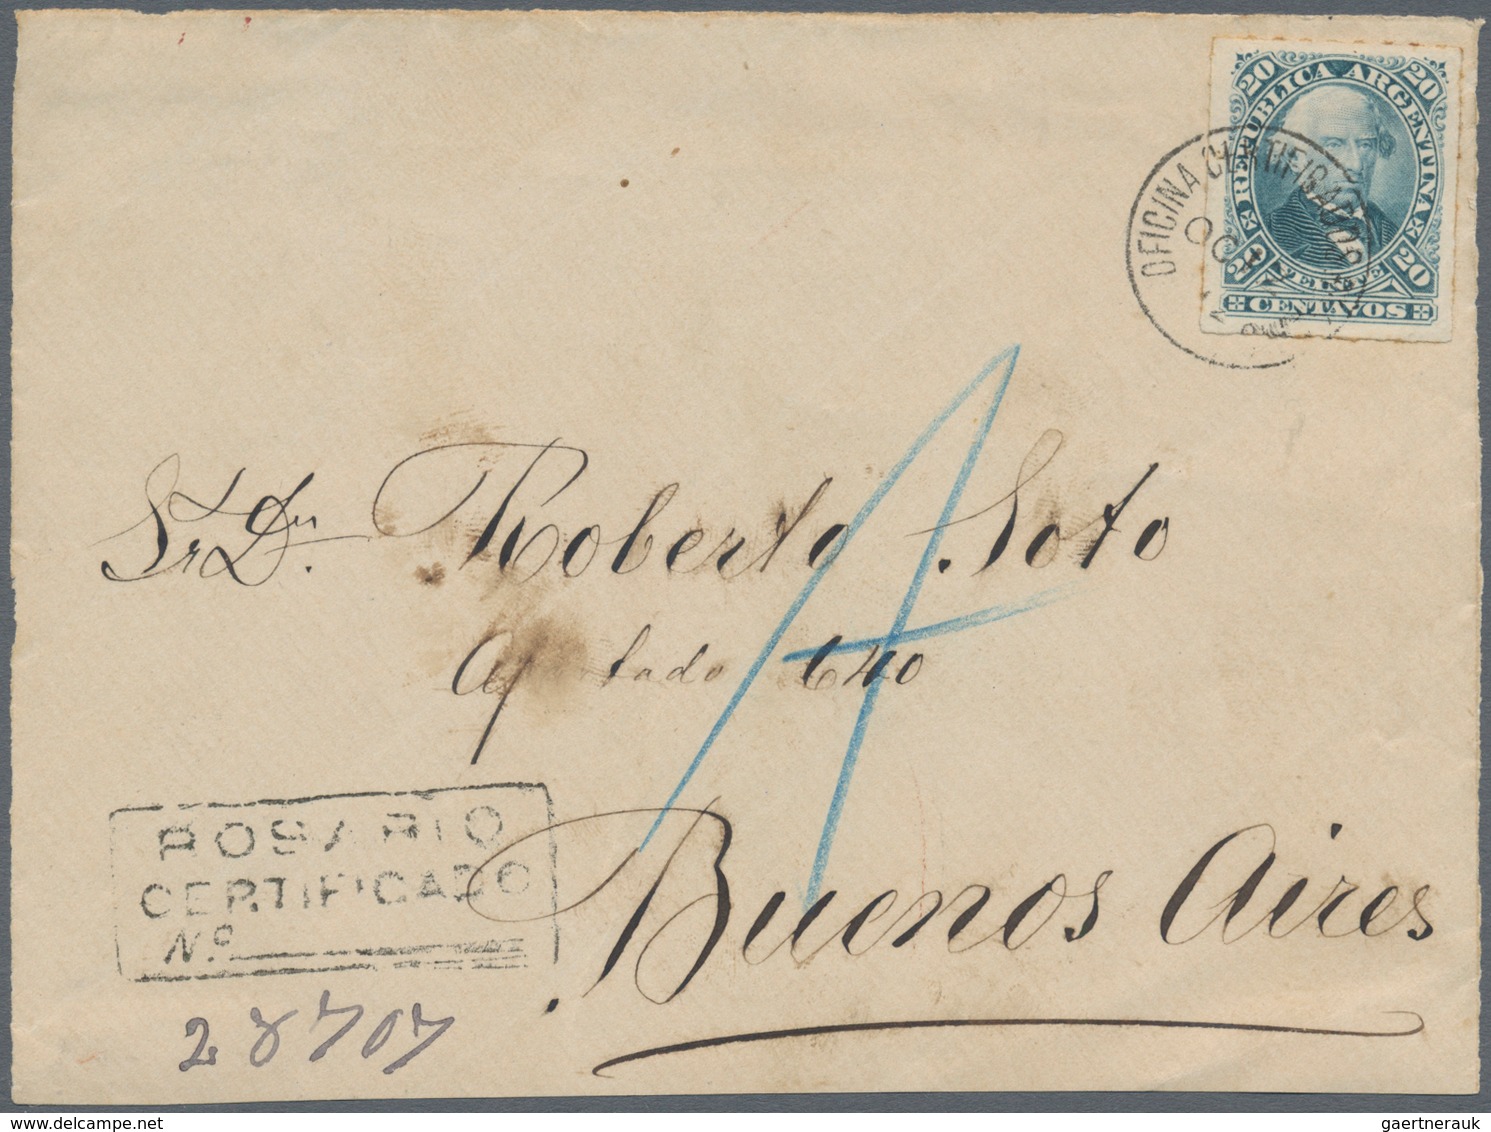 20 REPUBLICA ARGENTINA 20
20 VEINTE 20
CENTAVOS
OFICINA CERTIFICADOS
OC
Sr. Dn. Roberto Soto
Apartado 640
Buenos Aires
ROSARIO
CERTIFICADO
N.º
28707
gaertnerauk
delcampe.net